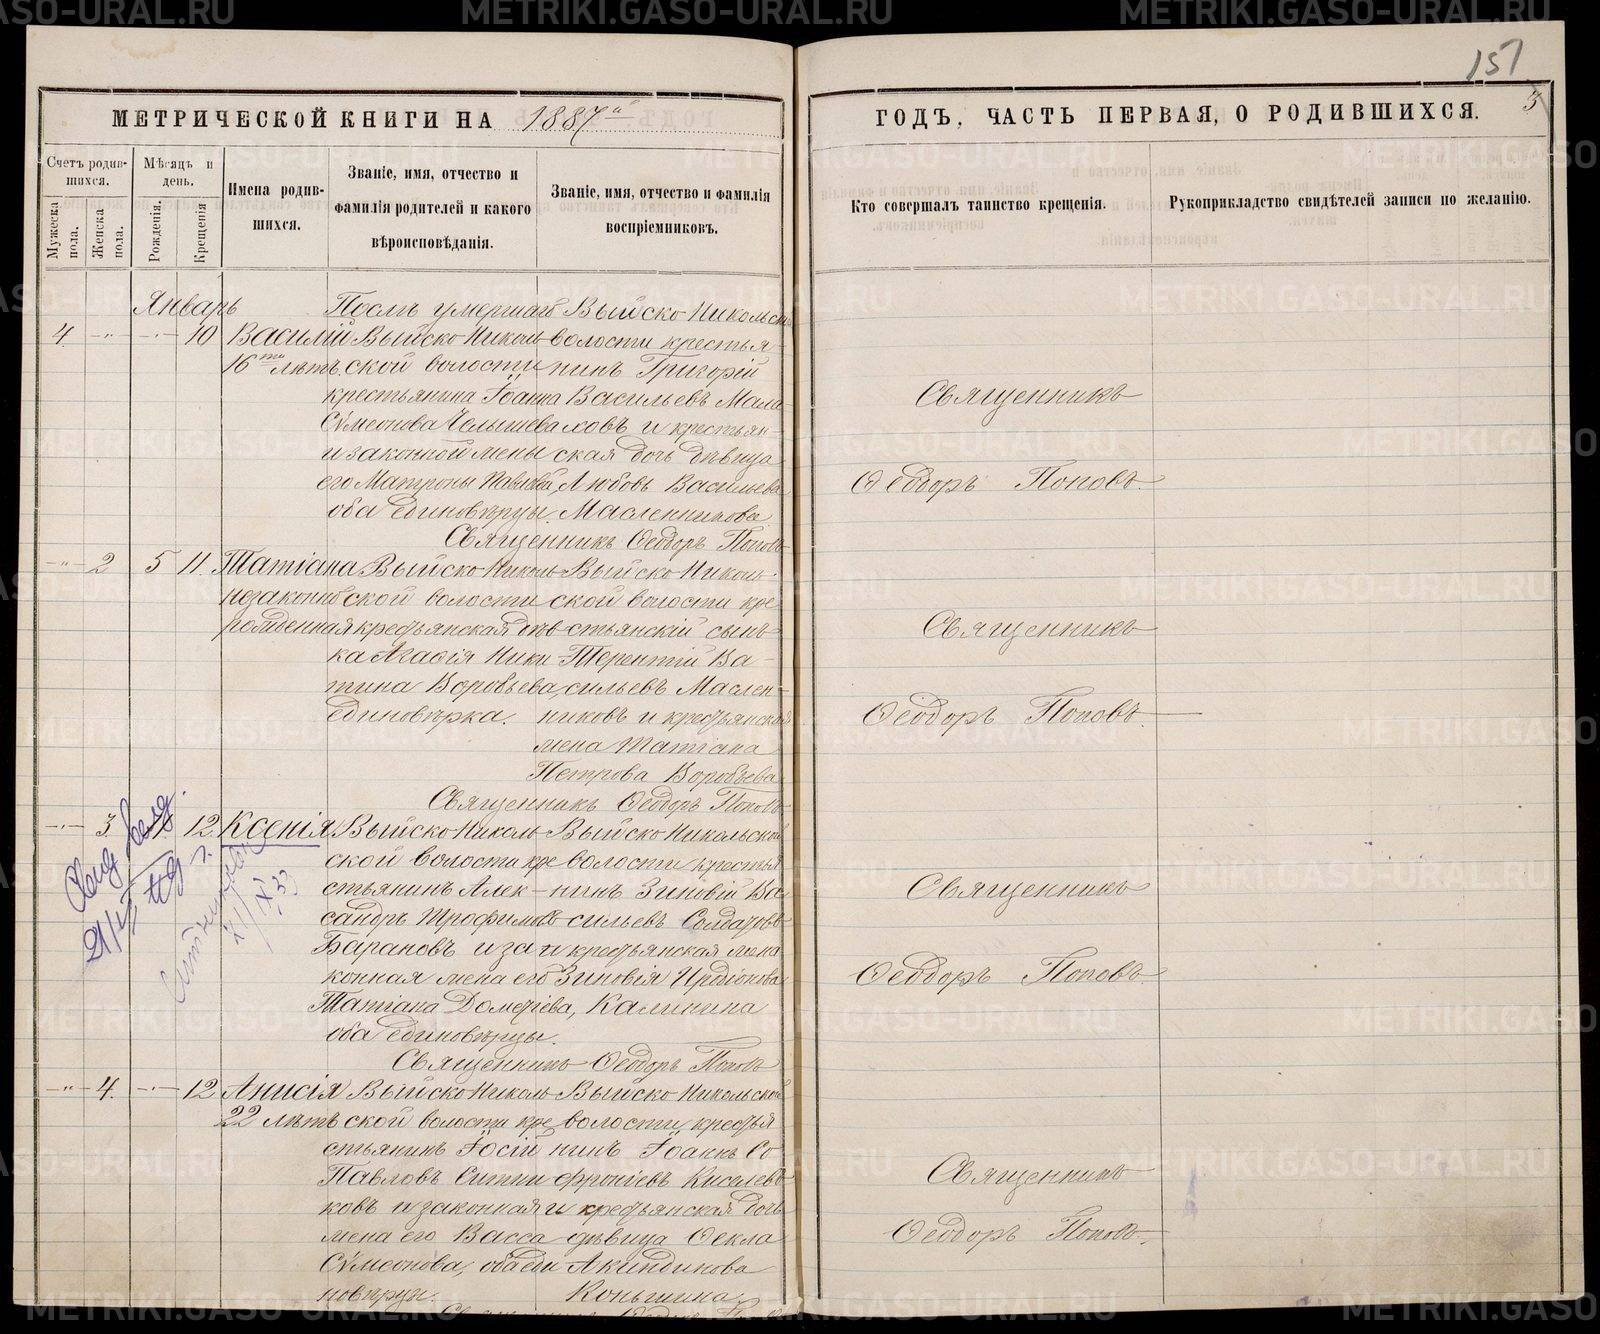 151
3
МЕТРИЧЕСКОЙ КНИГИ НА 1887й
ГОДЪ, ЧАСТЬ ПЕРВАЯ, О РОДИВШИХСЯ.
Счетъ родив-
шихся.
Мужеска пола.
Женска пола.
Мѣсяцъ и
день.
Рожденія.
Крещенія
Имена родив-
шихся.
Званіе, имя, отчество и
фамилія родителей и какого
вѣроисповѣданія.
Званіе, имя, отчество и фамилія
воспріемниковъ.
Кто совершалъ таинство крещенія.
Рукоприкладство свидѣтелей записи по желанію.
Январь
4. -"- -"- 10
Василій
16ти лѣтъ.
Послѣ умершаго
Выйско-Николь-
ской волости
крестьянина Іоанна
Сѵмеонова Челышева
и законной жены
его Матроны
оба единовѣрцы.
Выйско-Никольской
волости крестья-
нинъ Григорій
Васильевъ Мала-
ховъ и крестьян-
ская дочь дѣвица
Любовь Васильева
Масленникова.
Священникъ Ѳеодоръ Поповъ
Священникъ
Ѳеодоръ Поповъ.
-"- 2 5 11.
Татіана
незаконно
рожденная
Выйско-Николь-
ской волости
крестьянская дѣв-
ка Агафія Ники-
тина Воробьева,
единовѣрка.
Выйско-Николь-
ской волости кре-
стьянскій сынъ
Терентій Ва-
сильевъ Маслен-
никовъ и крестьянская
жена Татіана
Петрова Воробьева
Священникъ Ѳеодоръ Поповъ
Священникъ
Ѳеодоръ Поповъ.
-"- 3. 12
Ксенія
Выйско-Николь-
ской волости кре-
стьянинъ Алек-
сандръ Трофимовъ
Барановъ и за-
конная жена его
Татіана Дометіева,
оба единовѣрцы.
Выйско-Никольской
волости крестья-
нинъ Зиновій Ва-
сильевъ Солдатовъ
и крестьянская жена
Зиновія Иродіонова
Калинина
Священникъ Ѳеодоръ Поповъ
Священникъ
Ѳеодоръ Поповъ.
-"- 4. -"- 12
Анисія
22 лѣтъ
Выйско-Николь-
ской волости кре-
стьянинъ Іосій
Павловъ Ситни-
ковъ и законная
жена его Васса
Сѵмеонова, оба еди-
новѣрцы.
Выйско-Никольской
волости крестья-
нинъ Іоаннъ Со-
фроніевъ Киселевъ
и крестьянская дочь
дѣвица Ѳекла
Акиндинова
Коньшина.
Священникъ Ѳеодоръ Поповъ
Священникъ
Ѳеодоръ Поповъ.
METRIKI.GASO-URAL.RU